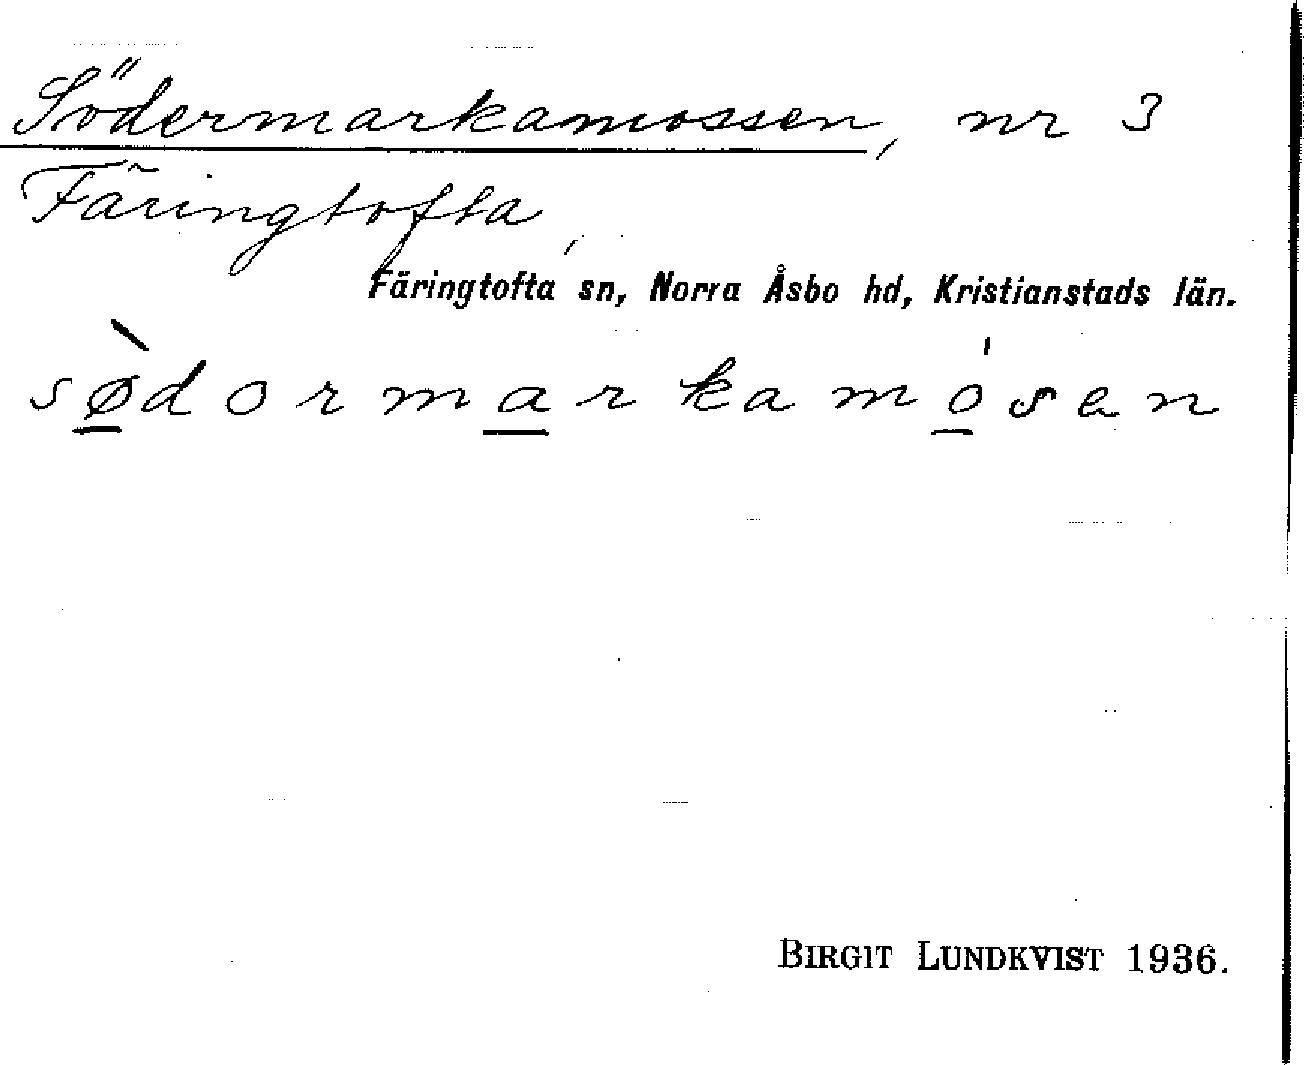 Södermarkamossen, nr 3
Färingtofta,
Färingtofta sn, Norra Åsbo hd, Kristianstads län.
sø̀dormarkamósen
BIRGIT LUNDKVIST 1936.